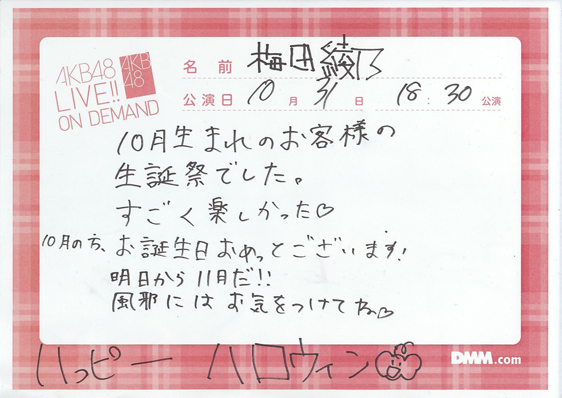 AKB48
LIVE!!
ON DEMAND
AKB
48
名前 梅田綾乃
公演日 10月31日 18:30公演
10月生まれのお客様の
生誕祭でした。
すごく楽しかった♡
10月の方、お誕生日おめっとございます!
明日から11月だ!!
風邪にはお気をつけてね♡
ハッピー ハロウィン
DMM.com